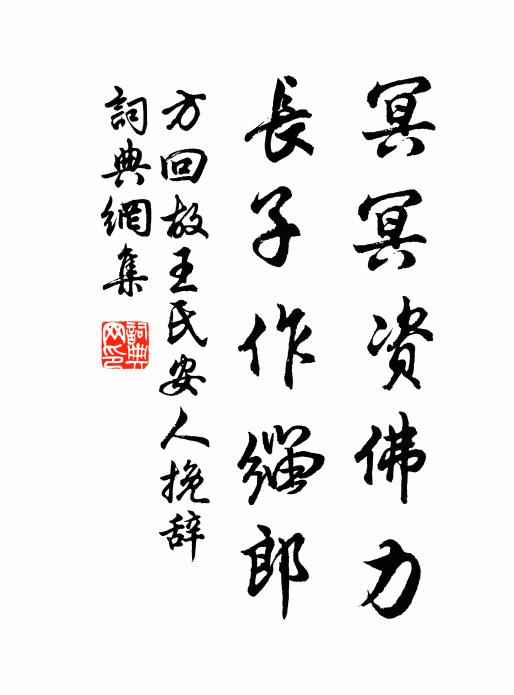 冥冥资佛力
長子作緇郎
方回故王氏安人挽辞
詞典網集
詞典网印